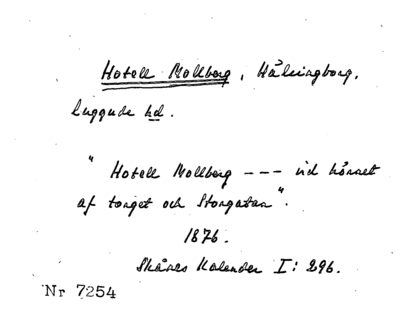 Hotell Mollberg, Hälsingborg,
Luggude hd.
"Hotell Mollberg --- vid hörnet
af torget och Storgatan".
1876.
Skånes Kalender I: 296.
Nr 7254